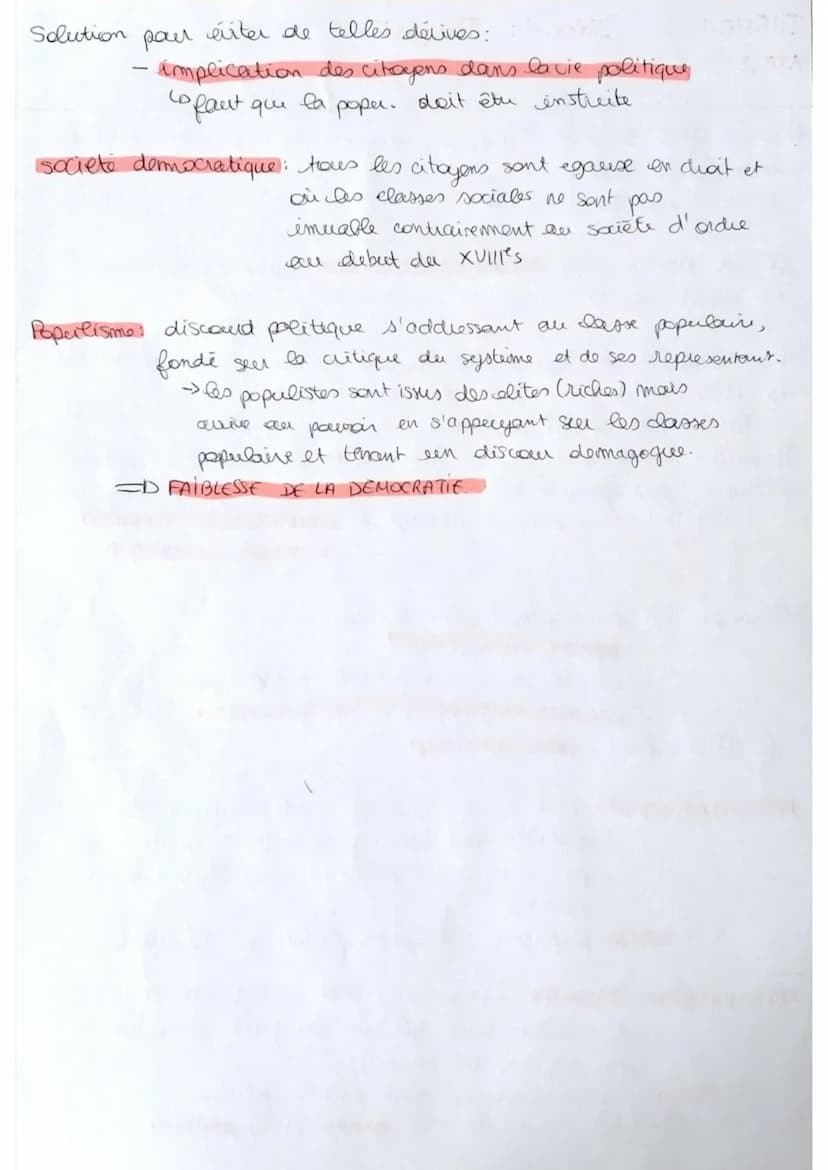 Solution pour éviter de telles dérives:
- implication des citoyens dans la vie politique
↳ faut que la popu. doit être instruite
societe democratique: tous les citoyens sont egaux en droit et
où les classes sociales ne sont pas
imuable contrairement au societe d'ordre
au debut du XVIIIes
Populisme: discourd politique s'addressant au classe populaire,
fondé sur la critique du système et de ses representant.
→ les populistes sont issus des elites (riches) mais
arrive au pouvoir en s'appuyant sur les classes
populaire et tenant un discour demagogue.
=> FAIBLESSE DE LA DEMOCRATIE.